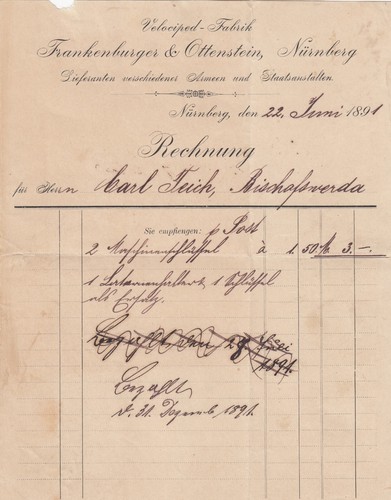 Velociped-Fabrik
Frankenburger & Ottenstein, Nürnberg
Lieferanten verschiedener Armeen und Staatsanstalten.
Nürnberg, den 22. Juni 1891
Rechnung
für Herrn Carl Teich, Bischofswerda
Sie empfingen: p Post
2 Maschinenschlüssel à 1.50 M 3.-.
1 Laternenhalter, 1 Schlüssel
als Ersatz.
Bezahlt den 28
1891.
Bezahlt
d. 31. Dezemb. 1891.